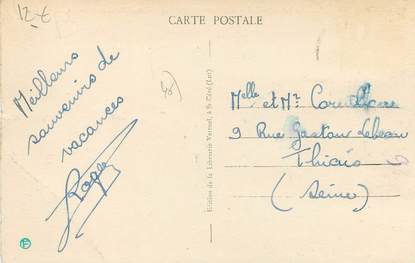 12 €
CARTE POSTALE
Meilleurs
souvenirs de
vacances
Roger
Edition de la Librairie Vertuel, à St-Céré (Lot)
Melle et Mr
9 Rue Gaston Lebeau
Thiais
(Seine)